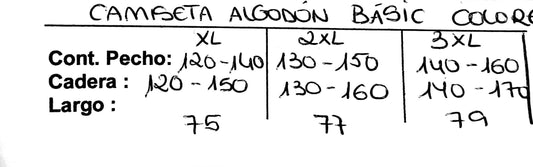 CAMISETA ALGODÓN BÁSIC COLORE
XL 2XL 3XL
Cont. Pecho: 120-140 130-150 140-160
Cadera : 120-150 130-160 140-170
Largo :
75 77 79